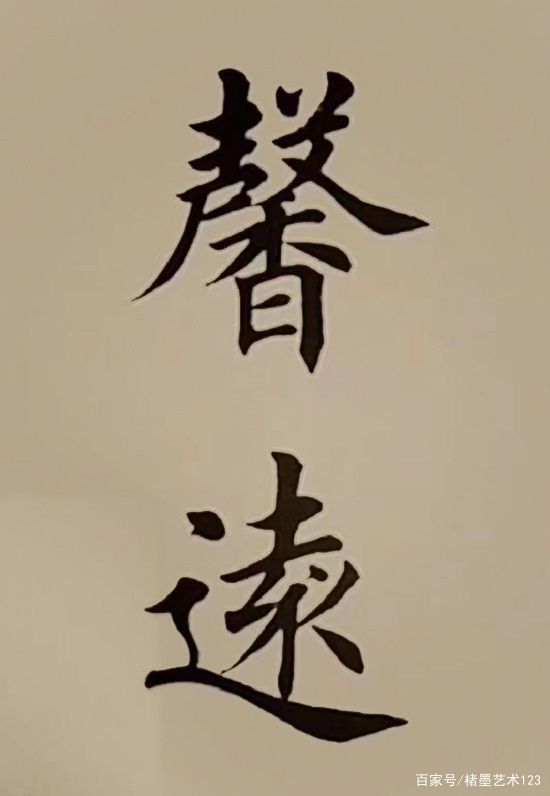 馨
遠
百家号/楮墨艺术123